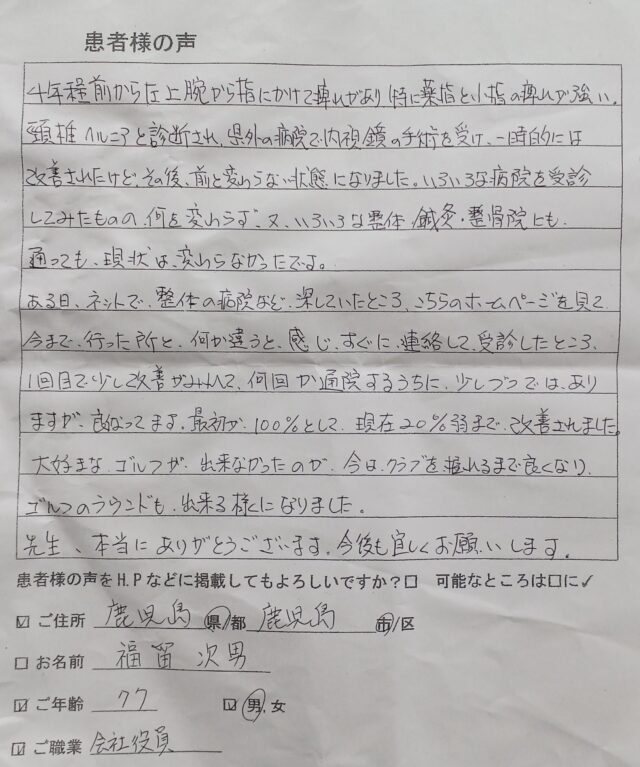 患者様の声
4年程前から左上腕から指にかけて痺れがあり特に薬指と小指の痺れが強い。
頸椎ヘルニアと診断され、県外の病院で内視鏡の手術を受け、一時的には
改善されたけど、その後、前と変わらない状態になりました。いろいろな病院を受診
してみたものの、何も変わらず、又、いろいろな整体、鍼灸・整骨院にも、
通っても、現状は、変わらなかったです。
ある日、ネットで、整体の病院など、探していたところ、こちらのホームページを見て
今まで、行った所と、何か違うと、感じ、すぐに、連絡して、受診したところ、
1回目で少し改善がみられて、何回か通院するうちに、少しづつでは、あり
ますが、良なってます。最初が、100%として、現在20%弱まで、改善されました。
大好きな、ゴルフが、出来なかったのが、今は、クラブを握れるまで良くなり、
ゴルフのラウンドも、出来る様になりました。
先生、本当にありがとうございます。今後も宜しくお願いします。
患者様の声をH.Pなどに掲載してもよろしいですか？□　可能なところは□に✓
☑ ご住所 鹿児島 県/都 鹿児島 市/区
□ お名前 福留 次男
☑ ご年齢 77 ☑ 男,女
☑ ご職業 会社役員